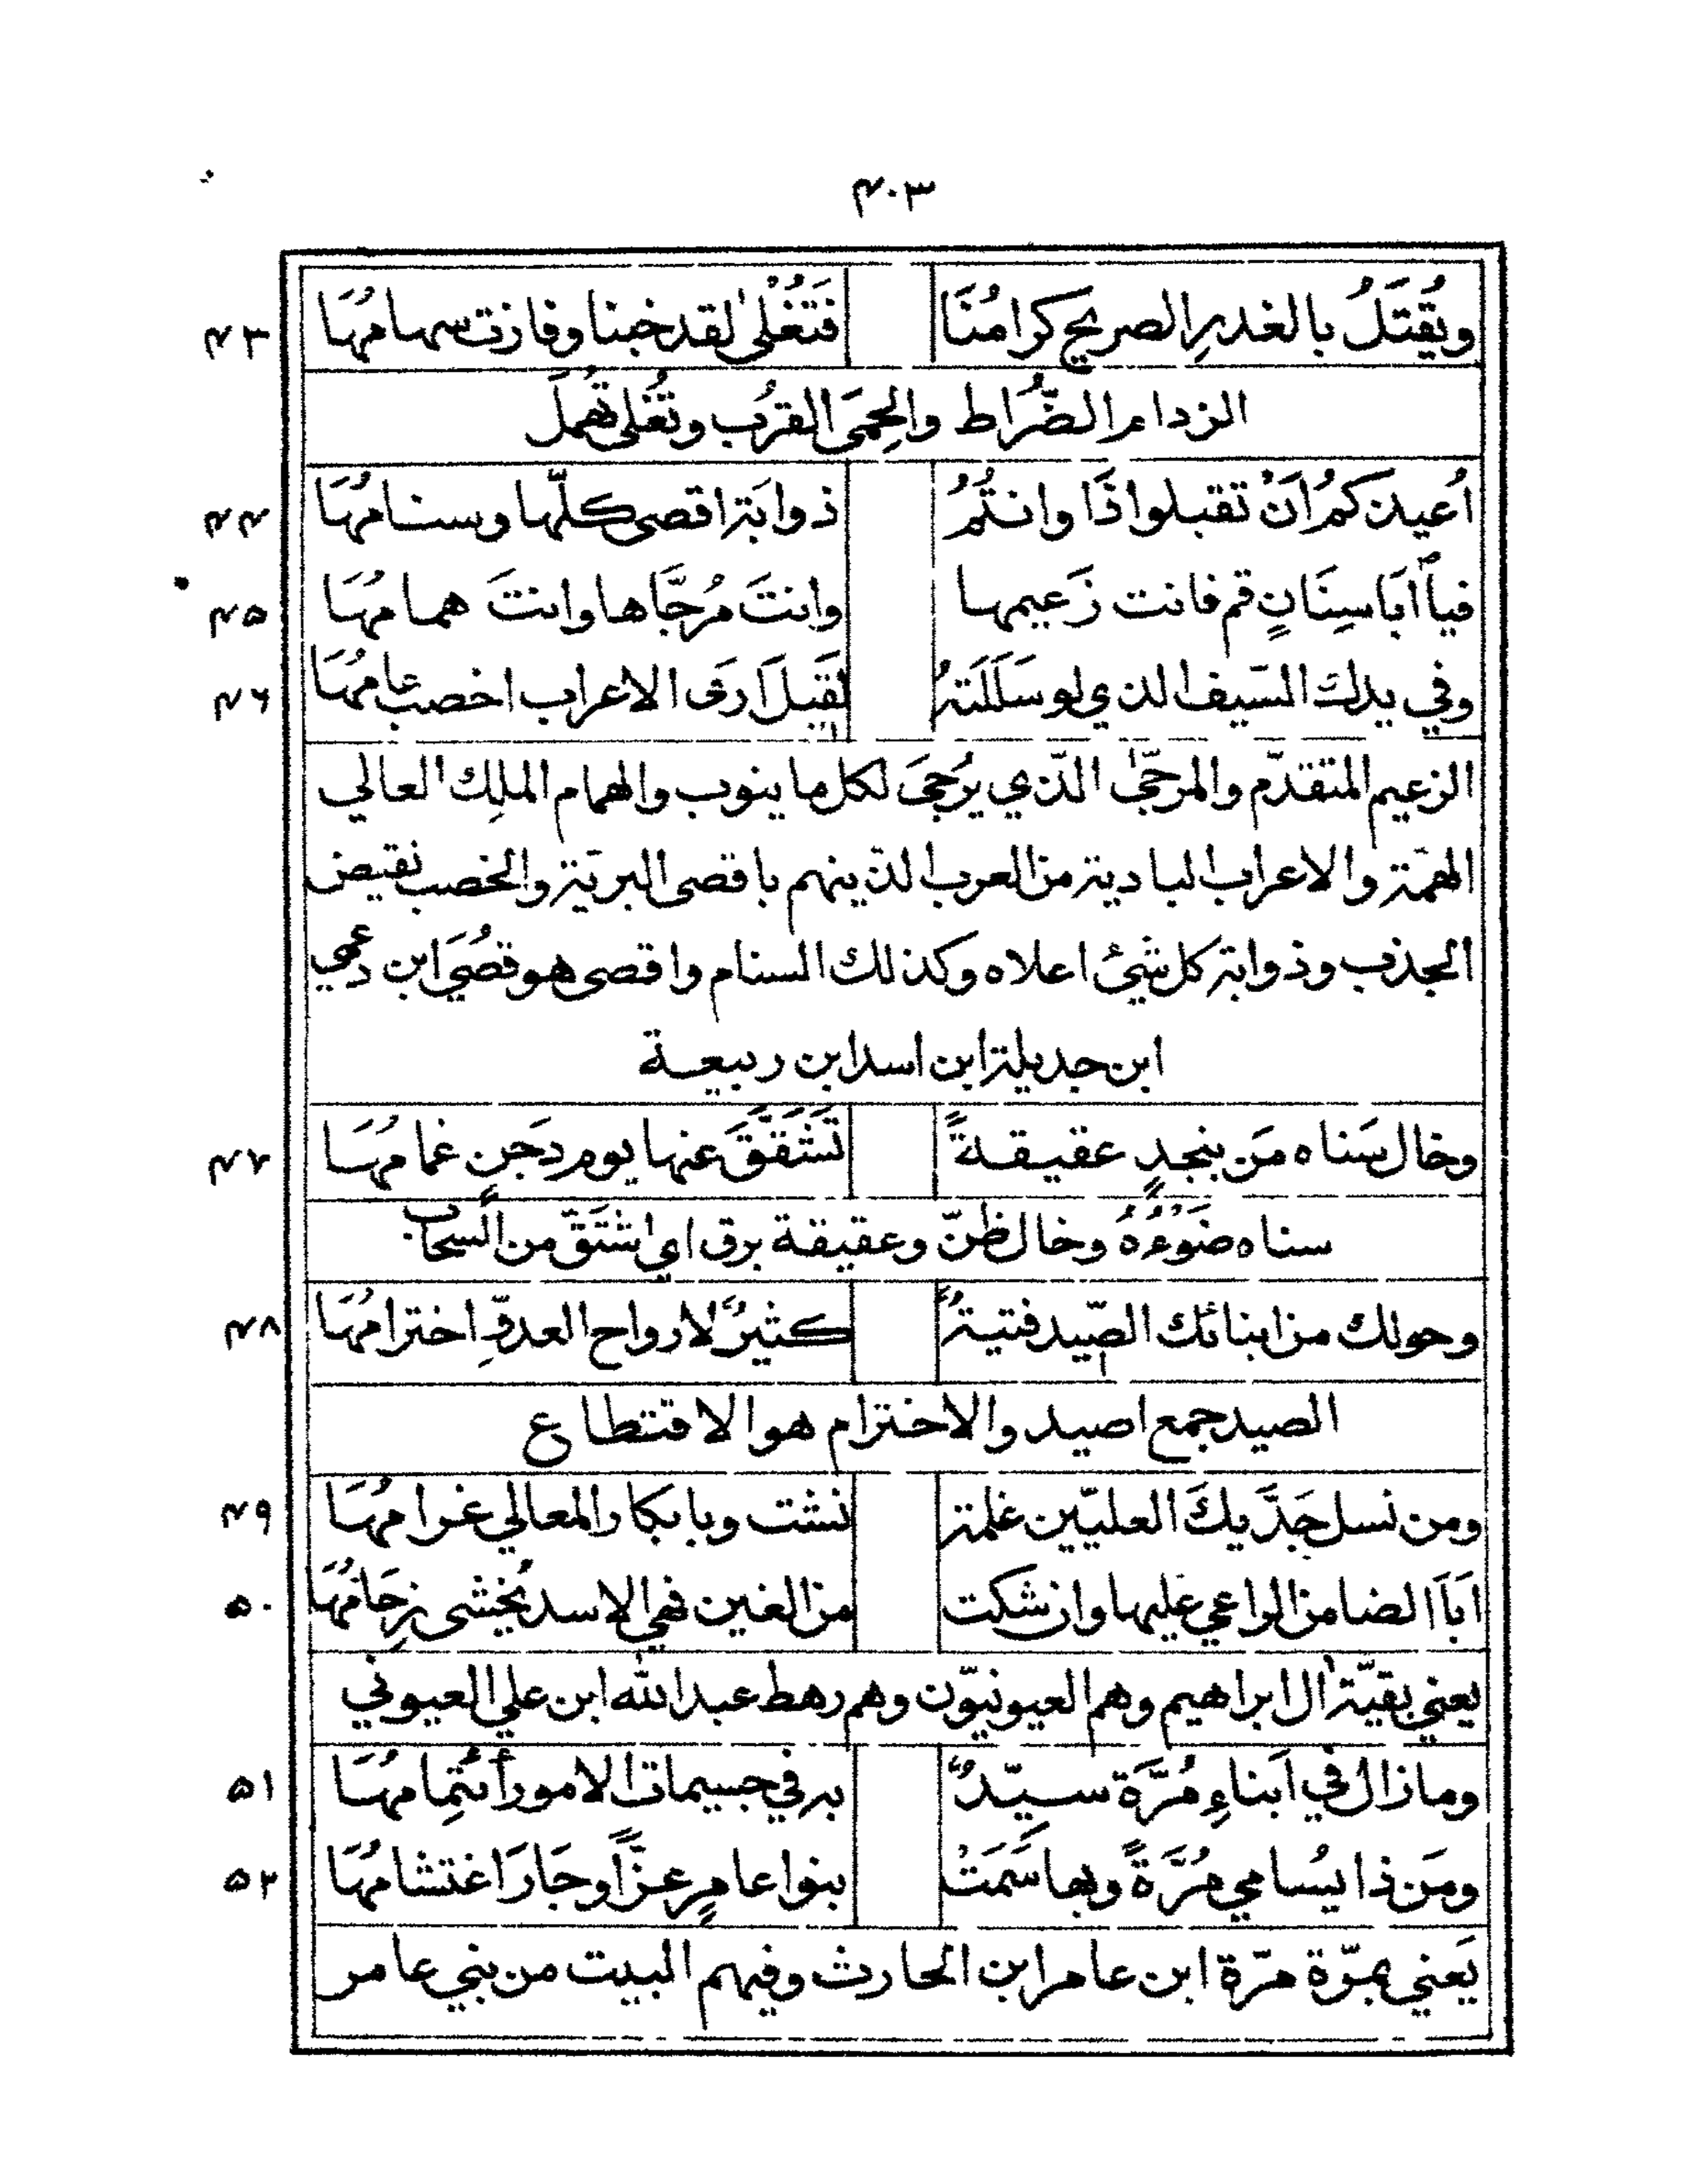 ۴۰۳
ويُقتَلُ بالغدرِ الصريح كرامُنَا فتَغُلىٰ لقد خبنا وفازت سهامهَا ۴۳
الزدام الضُّراط والحِمَى القرُب وتُغلى تُهملَ
اُعيذكمُ اَنْ تقبلوا ذَا وانتُمُ ذوابَة اقصى كلّها وسنامُهَا ۴۴
فيآ اَبا سِنَانٍ قم فانت زَعيمها وانتَ مُرجَّاها وانتَ همامهَا ۴۵
وفي يدك السَيف الذي لو سَلَلَتهُ لقَبلَ اَرىَ الاعراب اخصب عامُهَا ۴۶
الزعيم المتقدّم والمرجّىٰ الّذي يُرجىَ لكل ما ينوب والهمام الملِك العالي
الهمّة والاعراب البادية من العرب الذّينهم باقصى البريّة والخصب نقيض
الجذب وذوابة كل شيئ اعلاه وكذلك السنام واقصى هو قُصَي ابن دعمي
ابن جديلة ابن اسد ابن ربيعة
وخال سَناه مَن بنجدٍ عقيقةً تَشَقَّقَ عنها يوم دَجنٍ غمامهَا ۴۷
سناه ضَوءُهُ وخال ظنّ وعقيقة برق اي اشتَقّ من السحاب
وحولك من ابنائك الصّيد فتيةٌ كثيرٌ لارواح العدوِّ اخترامُهَا ۴۸
الصيد جمع اصيد والاخترام هو الاقتطاع
ومن نسل جَدَّيكَ العليّين غلمة نشت وبابكار المعالي غرامُهَا ۴۹
اَباَ الضامن الراعي عليها وان شكت من الغبن فهي الاسد يُخشى زِحَامُهَا ۵۰
يعني بقيّة اٰل ابراهيم وهم العيونيّون وهم رهط عبد الله ابن علي العيوني
وما زال في اَبناءِ مُرَّة سيّدٌ به في جسيمات الامور أئتِمامهَا ۵۱
ومَن ذا يُسامي مُرَّةً وبها سَمَتْ بنوا عامرٍ عزّاً وجَارَ اغتشامُهَا ۵۲
يَعني بمرّة مرّة ابن عامر ابن الحارث وفيهم البيت من بني عامر